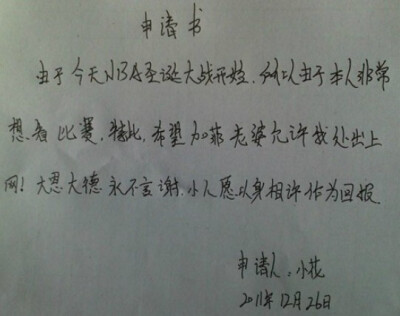 申请书
由于今天NBA圣诞大战开始，所以由于本人非常
想看比赛，特此，希望加菲老婆允许我处出上
网！大恩大德永不言谢，小人愿以身相许作为回报.
申请人：小花
2011年12月26日